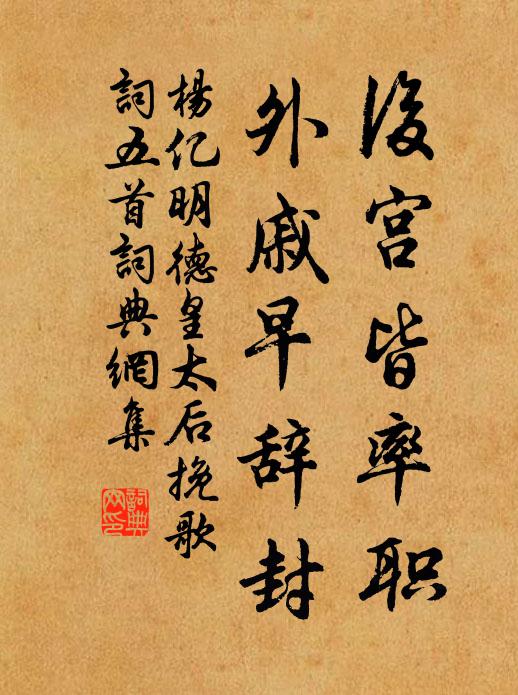 後宫皆率职
外戚早辞封
楊亿明德皇太后挽歌
詞五首詞典網集
詞典网印